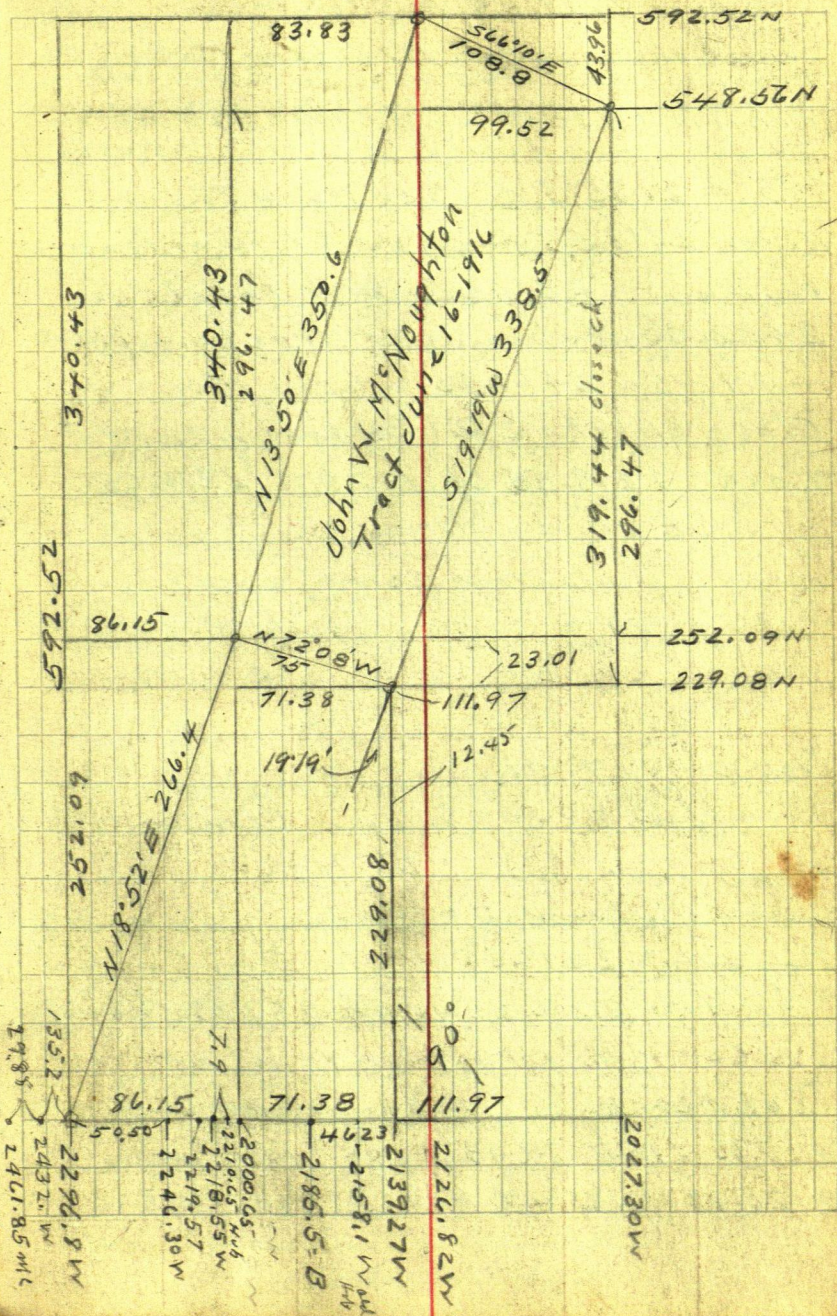 83.83
592.52 N
S66°10'E
108.8
43.96
548.56 N
99.52
340.43
340.43
296.47
N 13°50' E 350.6
John W. McNoughton
Tract June 16-1916
S 19°19' W 338.5
319.44 close ck
296.47
592.52
86.15
N 72°08' W
75
252.09 N
23.01
229.08 N
71.38
111.97
19°19'
12.45
252.09
N 18°52' E 266.4
229.08
90°
7.9
135.2
29.85
86.15
71.38
111.97
50.50
46.23
2461.85
2432. W
2296.8 W
2246.30 W
2219.57
2218.55 W
2210.65 Hub
2185.5 = B
2158.1 W old
Hub
2139.27 W
2126.82 W
2027.30 W